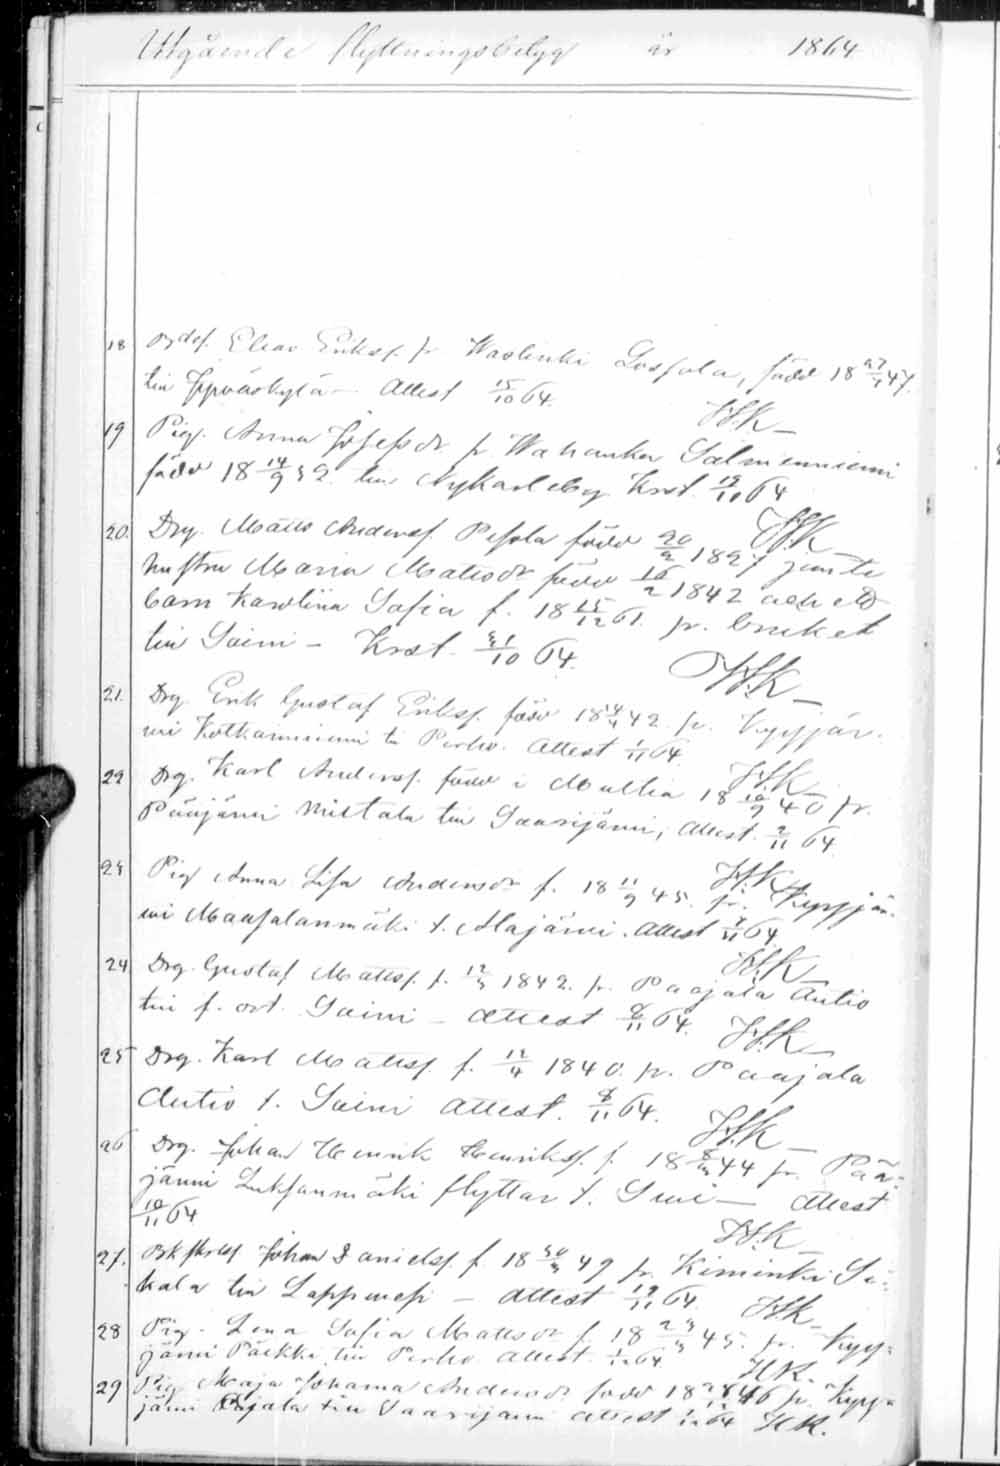 Utgående flyttningsbetyg år 1864
18 Elias Eriksf. fr Waslinki Losfola, född 18 27/7 47.
till Jyväskylä – Attest 15/10 64.
HK
19 Pig. Anna Josefsdr. fr. Wahanka Salmenniemi
född 18 14/9 32. till Nykarleby Krst. 19/10 64
HK
20. Drg. Matts Andersf. Pesola född 20/2 1827 jemte
hustru Maria Matsdr född 16/2 1842 och ett
barn Karolina Sofia f. 18 25/12 61. fr. bruket
till Soini – Krst. 31/10 64.
HK
21. Drg Erik Gustaf Eriksf. född 18 4/4 42. fr. Kyyjär-
vi Kotkanniemi ti Perho. Attest 1/11 64.
HK
22 Drg. Karl Andersf. född i Multia 18 10/9 40 fr.
Pääjärvi Mittala till Saarijärvi, Attest. 2/11 64.
HK
23 Pig Anna Lisa Andersdr f. 18 11/9 45. fr. Kyyjär-
vi Maasalanmäki t. Alajärvi. Attest 7/11 64.
HK
24 Drg. Gustaf Mattsf. f. 12/3 1842. fr. Paajala Autio
till f. ort. Soini – Attest 8/11 64.
HK
25 Drg. Karl Mattsf f. 12/4 1840. fr. Paajala
Autio t. Soini Attest. 8/11 64.
HK
26 Drg. Johan Henrik Henriksf. f. 18 44 fr. Pää-
järvi flyttar t. – Attest
10/11 64
HK
27. Johan Danielsf. f. 18 30/3 49 fr. Kiminki Si-
kala till Lappmesi – Attest 19/11 64.
HK
28 Pig. Lena Sofia Mattsdr f. 18 23/3 45. fr. Kyy-
järvi Päkki till Perho. Attest. 64
HK.
29 Pig Maja Johanna Andersdr född 18 46 fr. Kyy-
järvi Ojala till Saarijärvi Attest 64 HK.